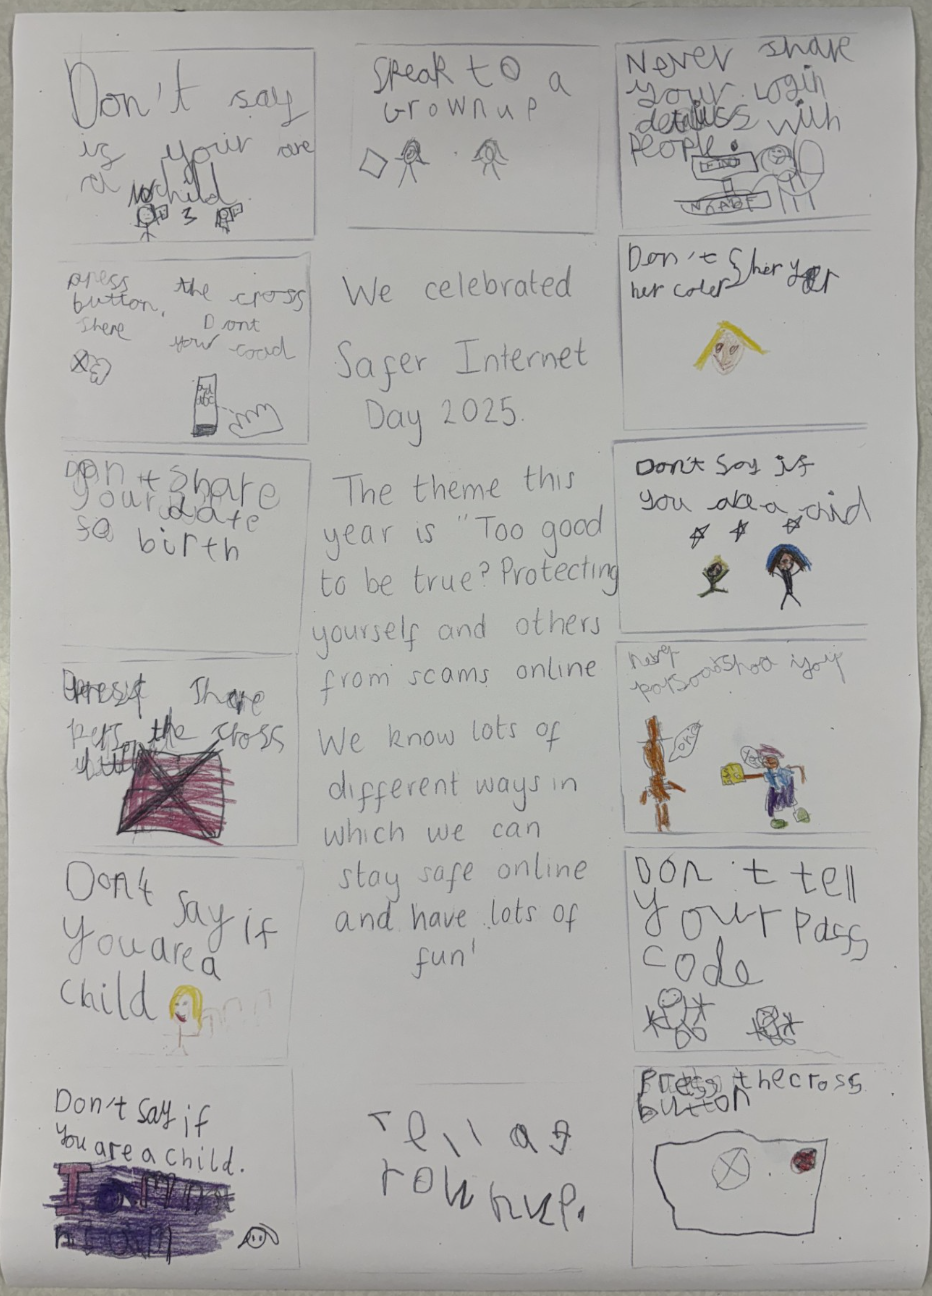 Don't say
is your are
a child
3
Speak to a
Grownup
Never share
your login
details with
people.
press the cross
button.
share Dont
your coad
We celebrated
Safer Internet
Day 2025.
The theme this
year is "Too good
to be true? Protecting
yourself and others
from scams online
We know lots of
different ways in
which we can
stay safe online
and have lots of
fun'
Don't Sher yor
her coler
Don't Share
your date
so birth
Don't Say if
you are a child
share
the cross
never
Don't
say if
you are a
child
DON't tell
your pass
code
Don't say if
you are a child.
I am
Tell a g
rownup.
Press the cross
button